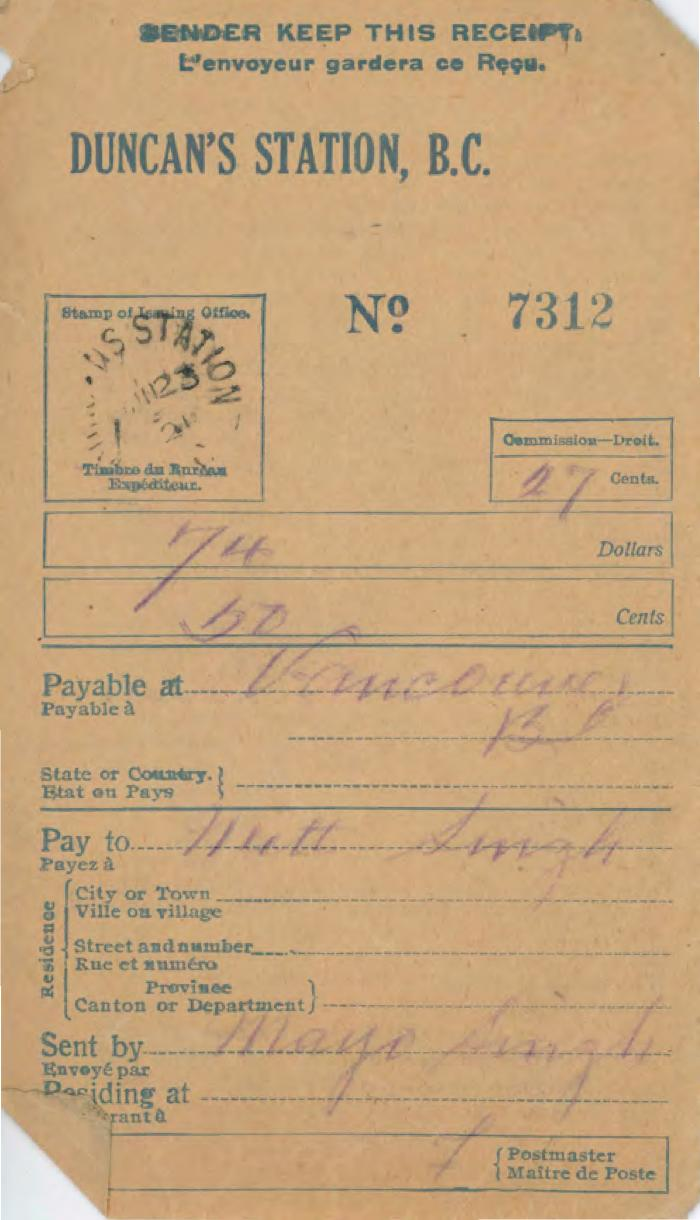 SENDER KEEP THIS RECEIPT.
L'envoyeur gardera ce Reçu.
DUNCAN'S STATION, B.C.
No. 7312
Stamp of Issuing Office.
US STATION
23
Timbre du Bureau
Expéditeur.
Commission—Droit.
27 Cents.
74 Dollars
50 Cents
Payable at Vancouver
Payable à
B C
State or Country.
Etat ou Pays
Pay to Singh
Payez à
Residence
City or Town
Ville ou village
Street and number
Rue et numéro
Province
Canton or Department
Sent by Mayo Singh
Envoyé par
Residing at
rant à
Postmaster
Maître de Poste